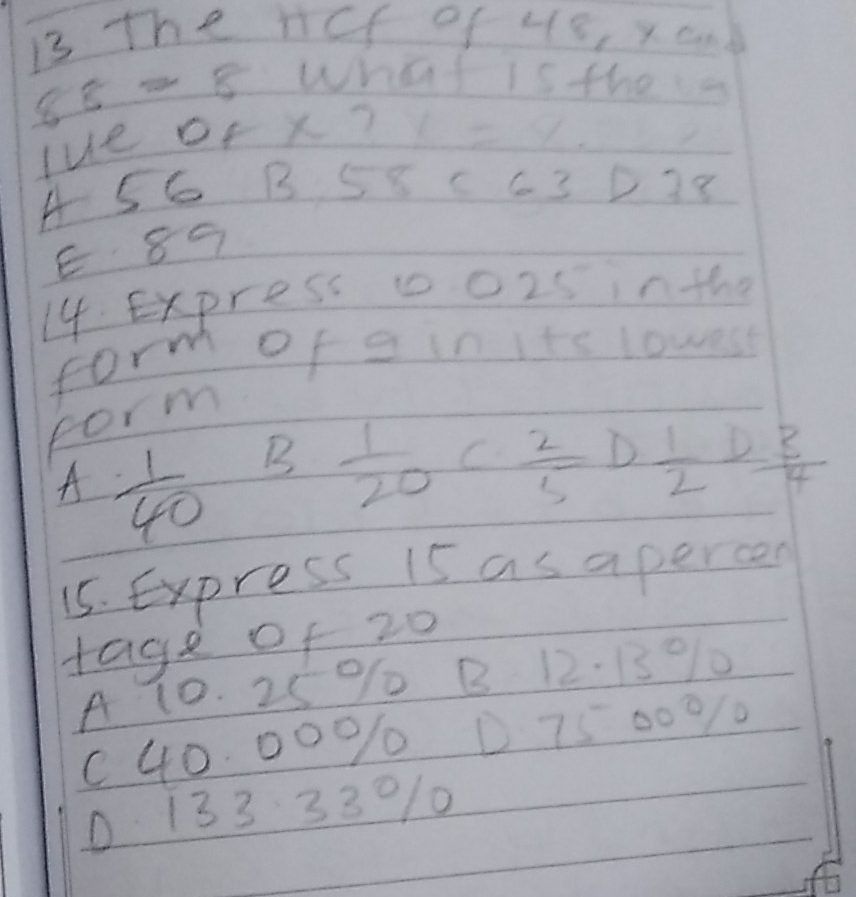 13 The HCf of 48, x and
88 = 8 What is the va
lue of x?
A 56 B 58 C 63 D 78
E. 89
14. Express 0.025 in the
form of a in its lowest
form
A. 1/40 B 1/20 C. 2/5 D 1/2 D 3/4
15. Express 15 as a percen
tage of 20
A 10.25% B 12.13%
C 40.00% D 75 00%
D. 133.33%